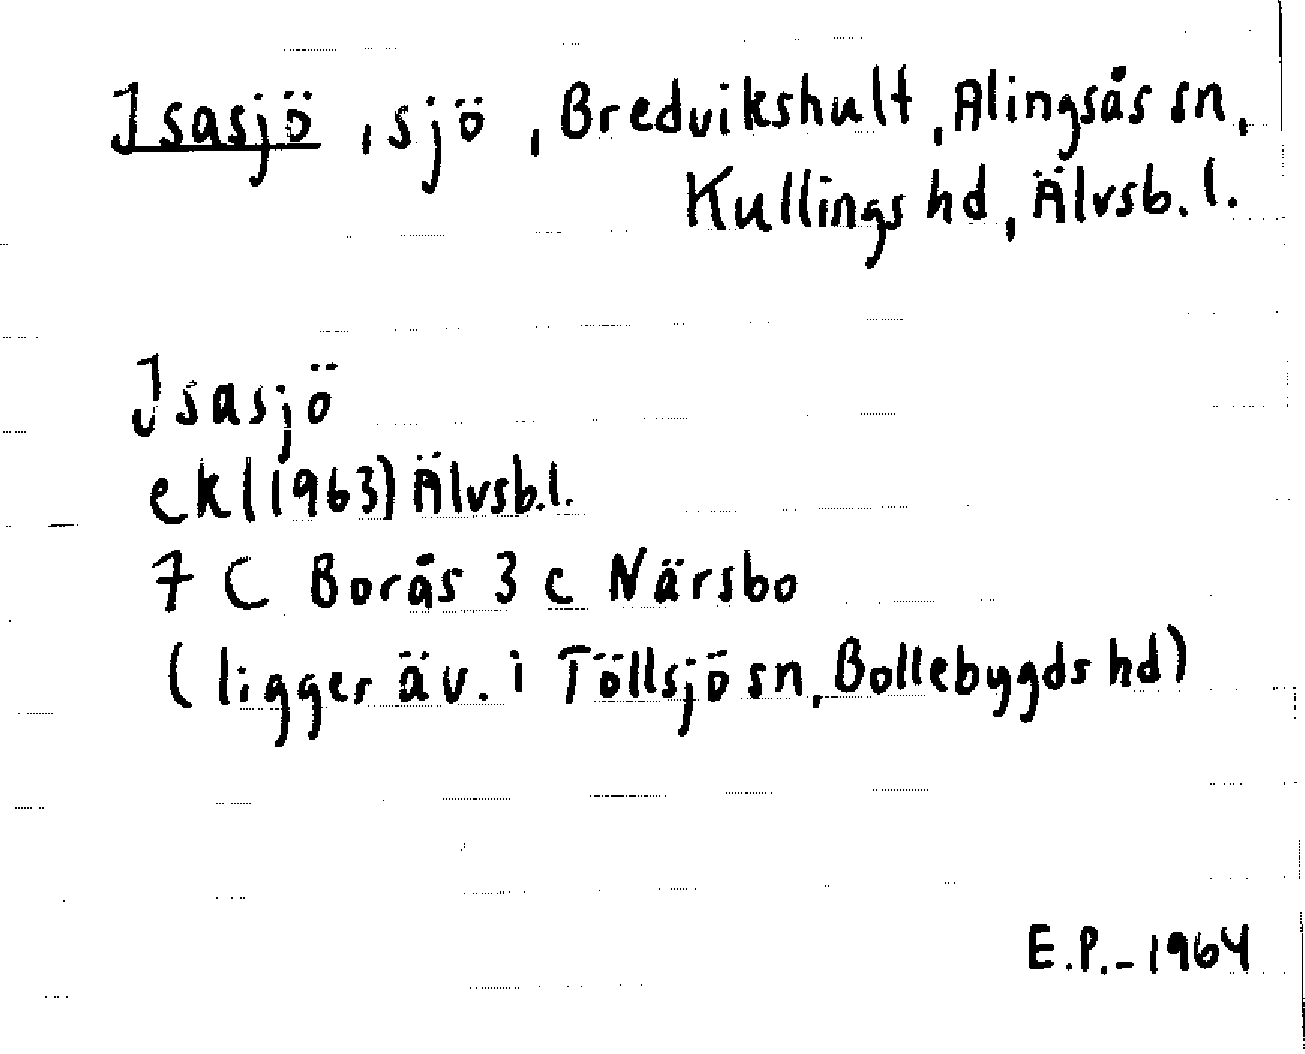 Isasjö, sjö, Bredvikshult, Alingsås sn,
Kullings hd, Älvsb. l.
Isasjö
ek (1963) Älvsb. l.
7 C Borås 3 c Närsbo
(ligger äv. i Töllsjö sn, Bollebygds hd)
E.P.-1964